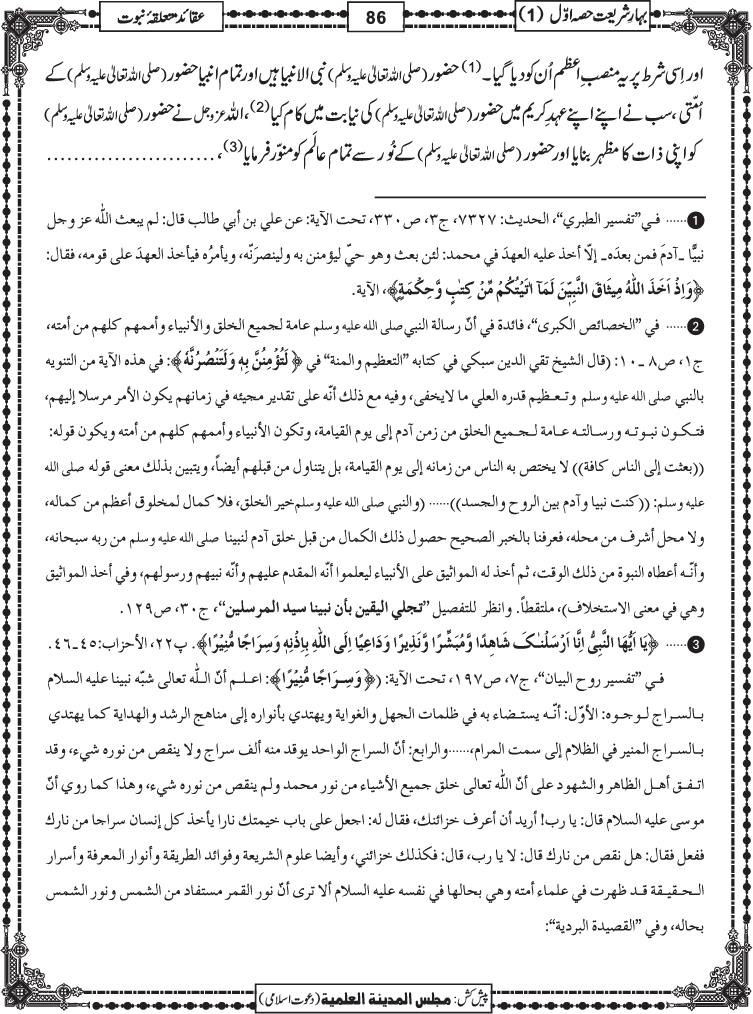 بہارِ شریعت حصہ اوّل (1)
86
عقائد متعلقۂ نبوت
اور اِسی شرط پر یہ منصبِ اعظم اُن کو دیا گیا۔(1) حضور (صلی اللہ تعالیٰ علیہ وسلم) نبی الانبیا ہیں اور تمام انبیا حضور (صلی اللہ تعالیٰ علیہ وسلم) کے
اُمّتی، سب نے اپنے اپنے عہدِ کریم میں حضور (صلی اللہ تعالیٰ علیہ وسلم) کی نیابت میں کام کیا(2)، اللہ عزوجل نے حضور (صلی اللہ تعالیٰ علیہ وسلم)
کو اپنی ذات کا مظہر بنایا اور حضور (صلی اللہ تعالیٰ علیہ وسلم) کے نُور سے تمام عالَم کو منوّر فرمایا(3)، .........................
1...... فـي ”تفسير الطبري“، الحديث: ٧٣٢٧، ج٣، ص٣٣٠، تحت الآية: عن علي بن أبي طالب قال: لم يبعث اللّٰه عز وجل
نبيًّا ـ آدمَ فمن بعدَه ـ إلّا أخذ عليه العهدَ في محمد: لئن بعث وهو حيّ ليؤمننّ به ولينصرَنّه، ويأمرُه فيأخذ العهدَ على قومه، فقال:
﴿وَاِذْ اَخَذَ اللّٰهُ مِيثَاقَ النَّبِيّٖنَ لَمَاۤ اٰتَيْتُكُمْ مِّنْ كِتٰبٍ وَّحِكْمَةٍ﴾، الآية.
2...... في ”الخصائص الكبرى“، فائدة في أنّ رسالة النبي صلى الله عليه وسلم عامة لجميع الخلق والأنبياء وأممهم كلهم من أمته،
ج١، ص٨ ـ ١٠: (قال الشيخ تقي الدين سبكي في كتابه ”التعظيم والمنة“ في ﴿لَتُؤْمِنُنَّ بِهٖ وَلَتَنْصُرُنَّهٗ﴾: في هذه الآية من التنويه
بالنبي صلى الله عليه وسلم وتـعـظيم قدره العلي ما لايخفى، وفيه مع ذلك أنّه على تقدير مجيئه في زمانهم يكون الأمر مرسلا إليهم،
فتـكـون نبـوتـه ورسـالتـه عـامة لـجـميع الخلق من زمن آدم إلى يوم القيامة، وتكون الأنبياء وأممهم كلهم من أمته ويكون قوله:
((بعثت إلى الناس كافة)) لا يختص به الناس من زمانه إلى يوم القيامة، بل يتناول من قبلهم أيضاً، ويتبين بذلك معنى قوله صلى الله
عليه وسلم: ((كنت نبيا وآدم بين الروح والجسد))...... (والنبي صلى الله عليه وسلم خير الخلق، فلا كمال لمخلوق أعظم من كماله،
ولا محل أشرف من محله، فعرفنا بالخبر الصحيح حصول ذلك الكمال من قبل خلق آدم لنبينا صلى الله عليه وسلم من ربه سبحانه،
وأنّـه أعطاه النبوة من ذلك الوقت، ثم أخذ له المواثيق على الأنبياء ليعلموا أنّه المقدم عليهم وأنّه نبيهم ورسولهم، وفي أخذ المواثيق
وهي في معنى الاستخلاف)، ملتقطاً. وانظر للتفصيل ”تجلي اليقين بأن نبينا سيد المرسلين“، ج٣٠، ص١٢٩.
3...... ﴿يٰۤاَيُّهَا النَّبِيُّ اِنَّاۤ اَرْسَلْنٰكَ شَاهِدًا وَّمُبَشِّرًا وَّنَذِيْرًا وَّدَاعِيًا اِلَى اللّٰهِ بِاِذْنِهٖ وَسِرَاجًا مُّنِيْرًا﴾. پ٢٢، الأحزاب: ٤٥ـ٤٦.
فـي ”تفسير روح البيان“، ج٧، ص١٩٧، تحت الآية: (﴿وَسِرَاجًا مُّنِيْرًا﴾: اعـلـم أنّ الـلّٰه تعالى شبّه نبينا عليه السلام
بـالسـراج لـوجـوه: الأوّل: أنّـه يسـتـضاء به في ظلمات الجهل والغواية ويهتدي بأنواره إلى مناهج الرشد والهداية كما يهتدي
بـالسـراج المنير في الظلام إلى سمت المرام،......والرابع: أنّ السراج الواحد يوقد منه ألف سراج ولا ينقص من نوره شيء، وقد
اتـفـق أهـل الظاهر والشهود على أنّ اللّٰه تعالى خلق جميع الأشياء من نور محمد ولم ينقص من نوره شيء، وهذا كما روي أنّ
موسى عليه السلام قال: يا رب! أريد أن أعرف خزائنك، فقال له: اجعل على باب خيمتك نارا يأخذ كل إنسان سراجا من نارك
ففعل فقال: هل نقص من نارك قال: لا يا رب، قال: فكذلك خزائني، وأيضا علوم الشريعة وفوائد الطريقة وأنوار المعرفة وأسرار
الـحـقيـقة قـد ظهرت في علماء أمته وهي بحالها في نفسه عليه السلام ألا ترى أنّ نور القمر مستفاد من الشمس ونور الشمس
بحاله، وفي ”القصيدة البردية“:
پیش کش: مجلس المدینۃ العلمیۃ (دعوتِ اسلامی)